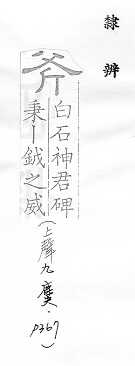 隸辨
斧
白石神君碑
秉丨鉞之威
(上聲九麌·P367)